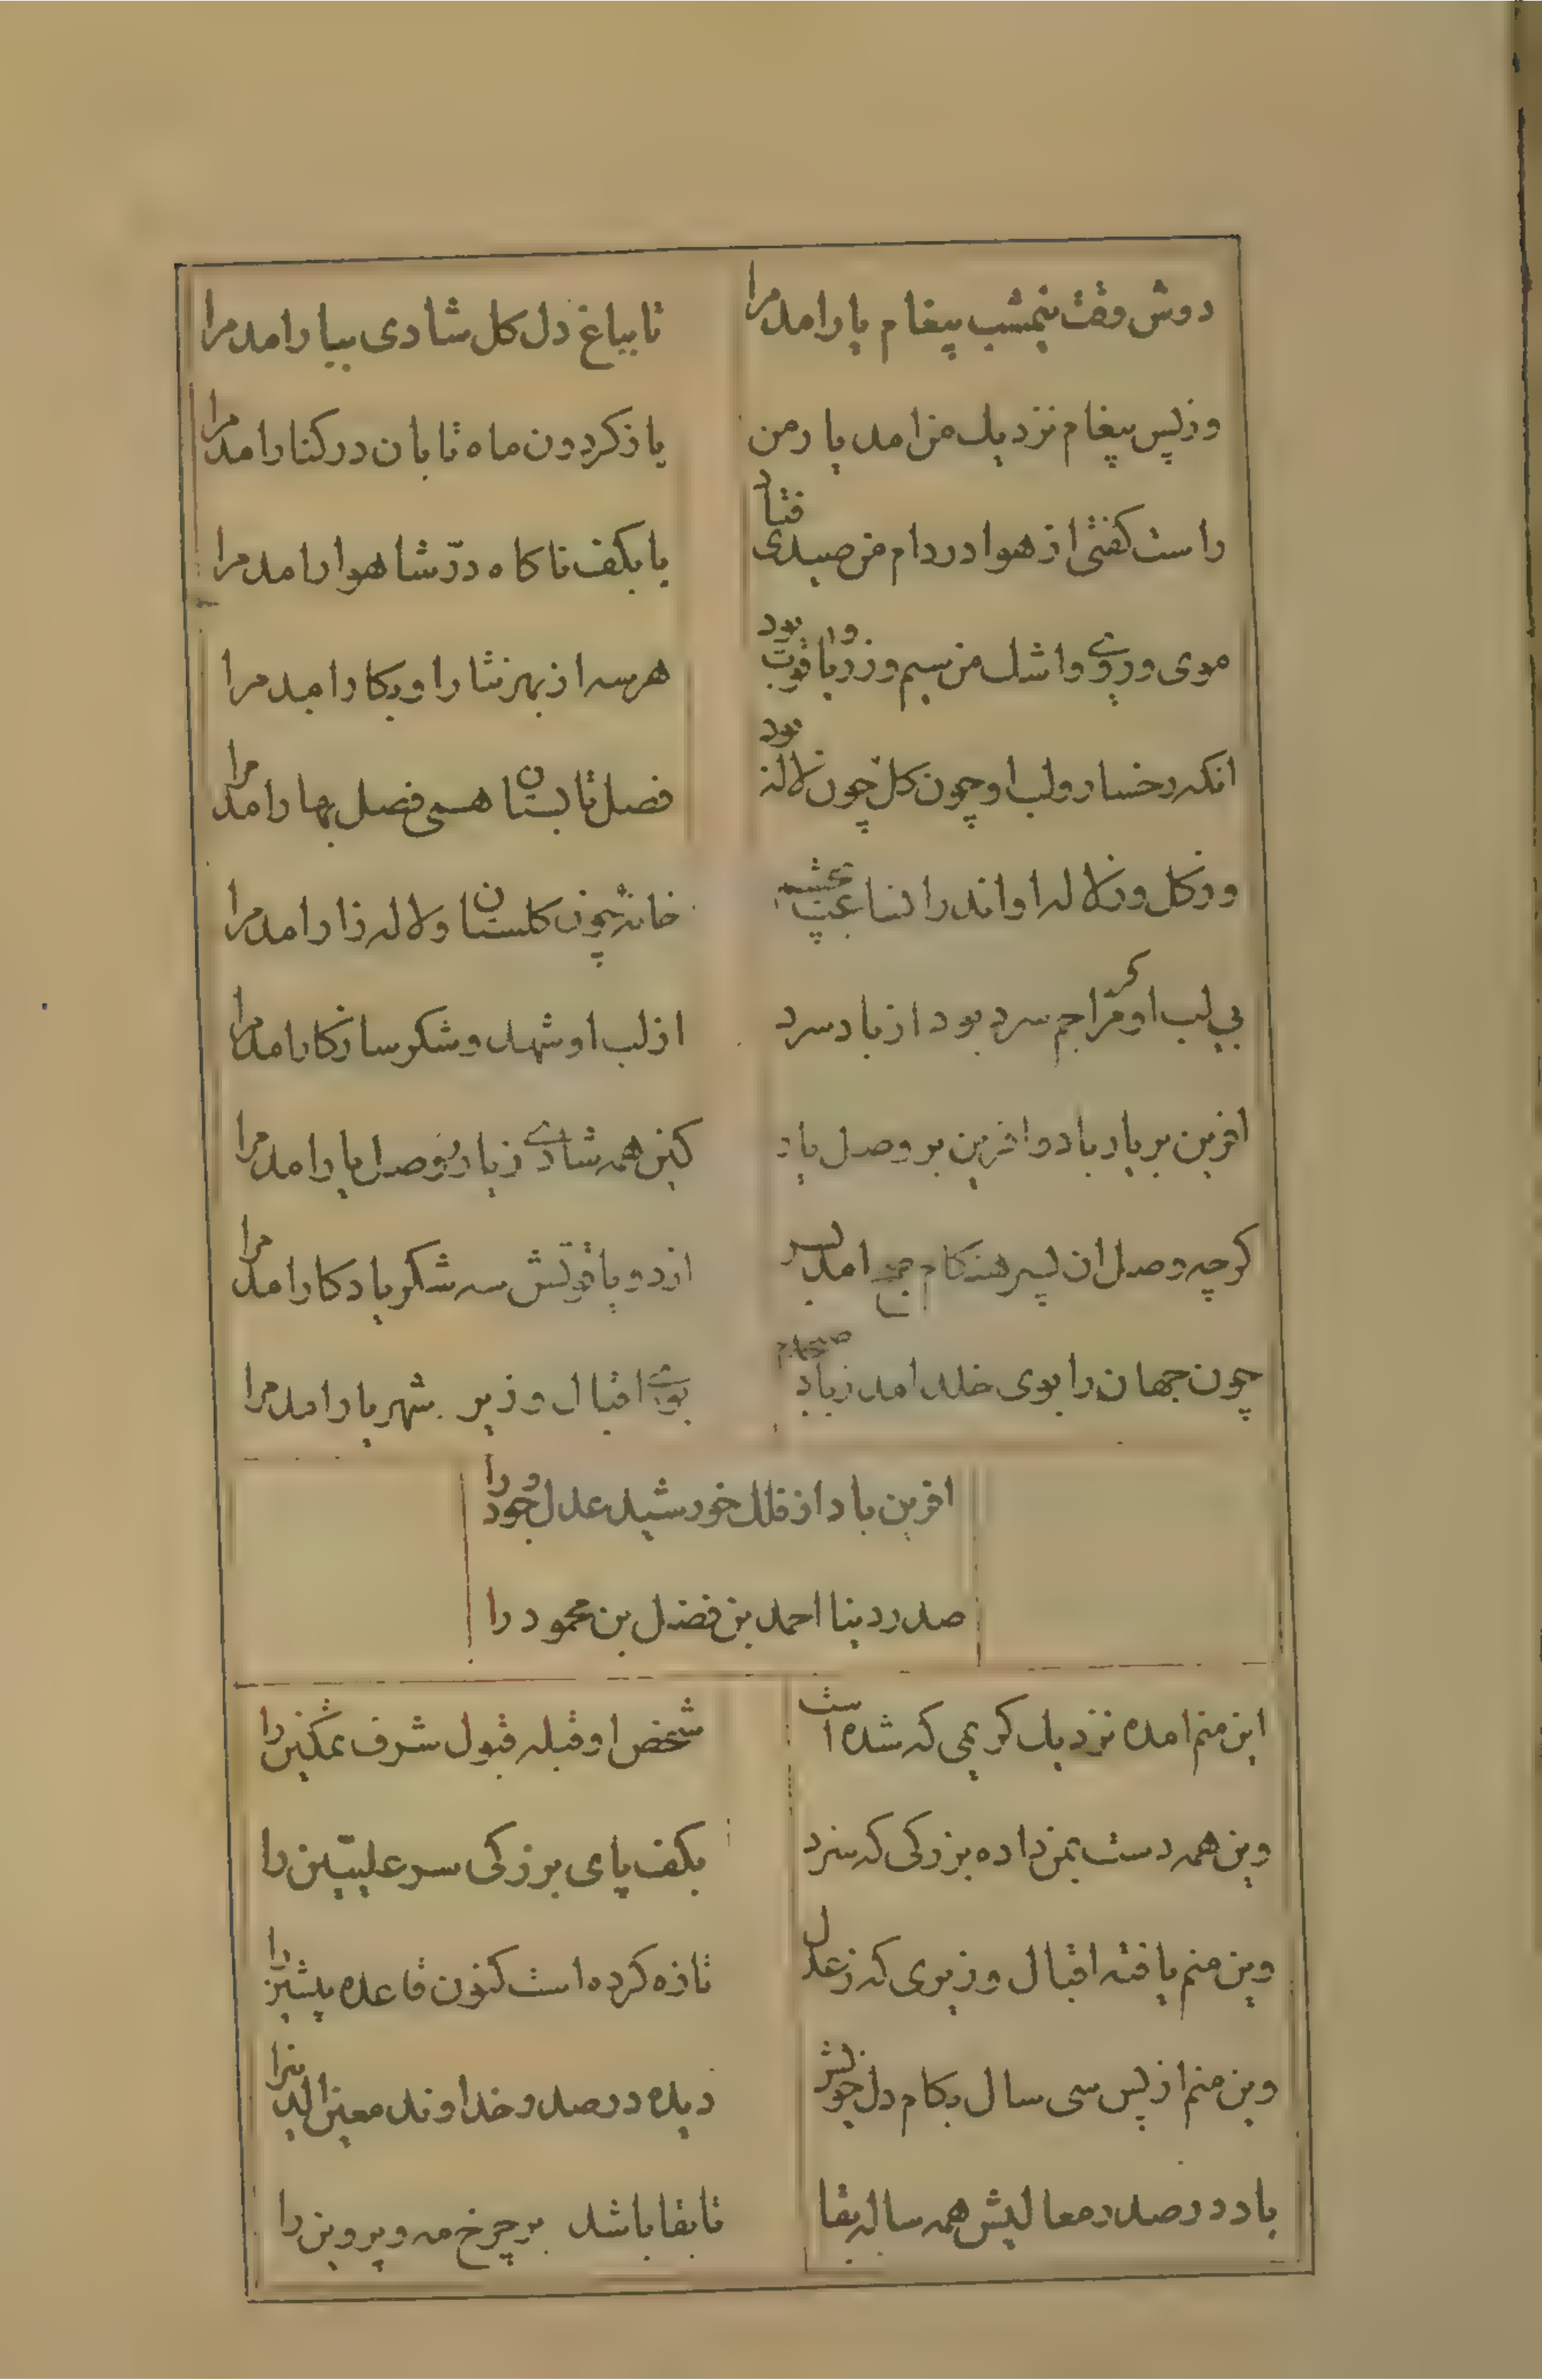 دوش وقت نیمشب پیغام یار امد مرا
تا بباغ دل کل شادی ببار امد مرا
وز پس پیغام نزدیک من امد یار من
یا ز کردون ماه تابان در کنار امد مرا
راست کفتی از هوا در دام من صیدی فتاد
یا بکف ناکاه درّ شاهوار امد مرا
موی و روی و اشک من سیم و زر و یاقوت بود
هر سه از بهر نثار او بکار امد مرا
انکه رخسار و لب او چون کل چون لاله بود
فصل تابستان همی فصل بهار امد مرا
وز کل وز لاله او اندر
خانه چون کلستان و لاله زار امد مرا
بی لب او کر مزاجم سرد بود از باد سرد
از لب او شهد و شکر سازکار امد مرا
افرین بر یار باد و افرین بر وصل یار
کین همه شادی ز یار و وصل یار امد مرا
کرچه وصل ان پسر هنکام امد بسر
از دو یاقوتش سه شکر یادکار امد مرا
چون جهان را بوی خلد امد ز باد صبحدم
بوی اقبال وزیر شهریار امد مرا
افرین باد از فلک خورشید عدل و جود را
صدر دینا احمد بن فضل بن محمود را
این منم امده نزدیک کریمی که شده است
شخص او قبله قبول شرف تمکین را
وین همه دست بمن داده بزرکی که سزد
بکف پای بزرکی سر علیّین را
وین منم یافته اقبال وزیری که ز عدل
تازه کرده است کنون قاعده پیشین را
وین منم از پس سی سال بکام دل خویش
دیده در صدر خداوند معین الدین را
باد در صدر معالیش همه ساله بقا
تا بقا باشد بر چرخ مه و پروین را